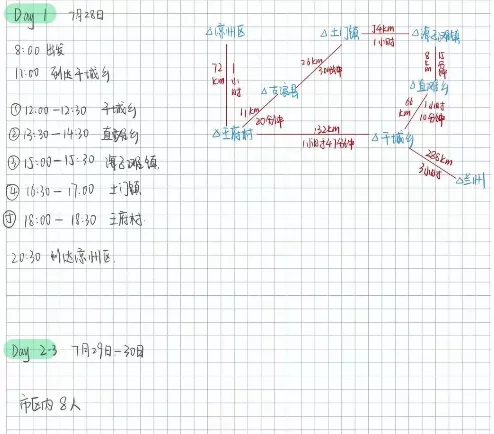 Day 1 7月28日
8:00 出发
11:00 到达干城乡
① 12:00-12:30 干城乡
② 13:30-14:30 直滩乡
③ 15:00-15:30 海子滩镇
④ 16:30-17:00 土门镇
⑤ 18:00-18:30 王府村
20:30 到达凉州区.
Day 2-3 7月29日-30日
市区内 8人
△凉州区
△土门镇
34km
1小时
△海子滩镇
72km
1小时
26km
30分钟
8km
15分钟
△古浪县
△直滩乡
11km
20分钟
66km
1小时10分钟
△王府村
132km
1小时47分钟
△干城乡
288km
3小时
△兰州